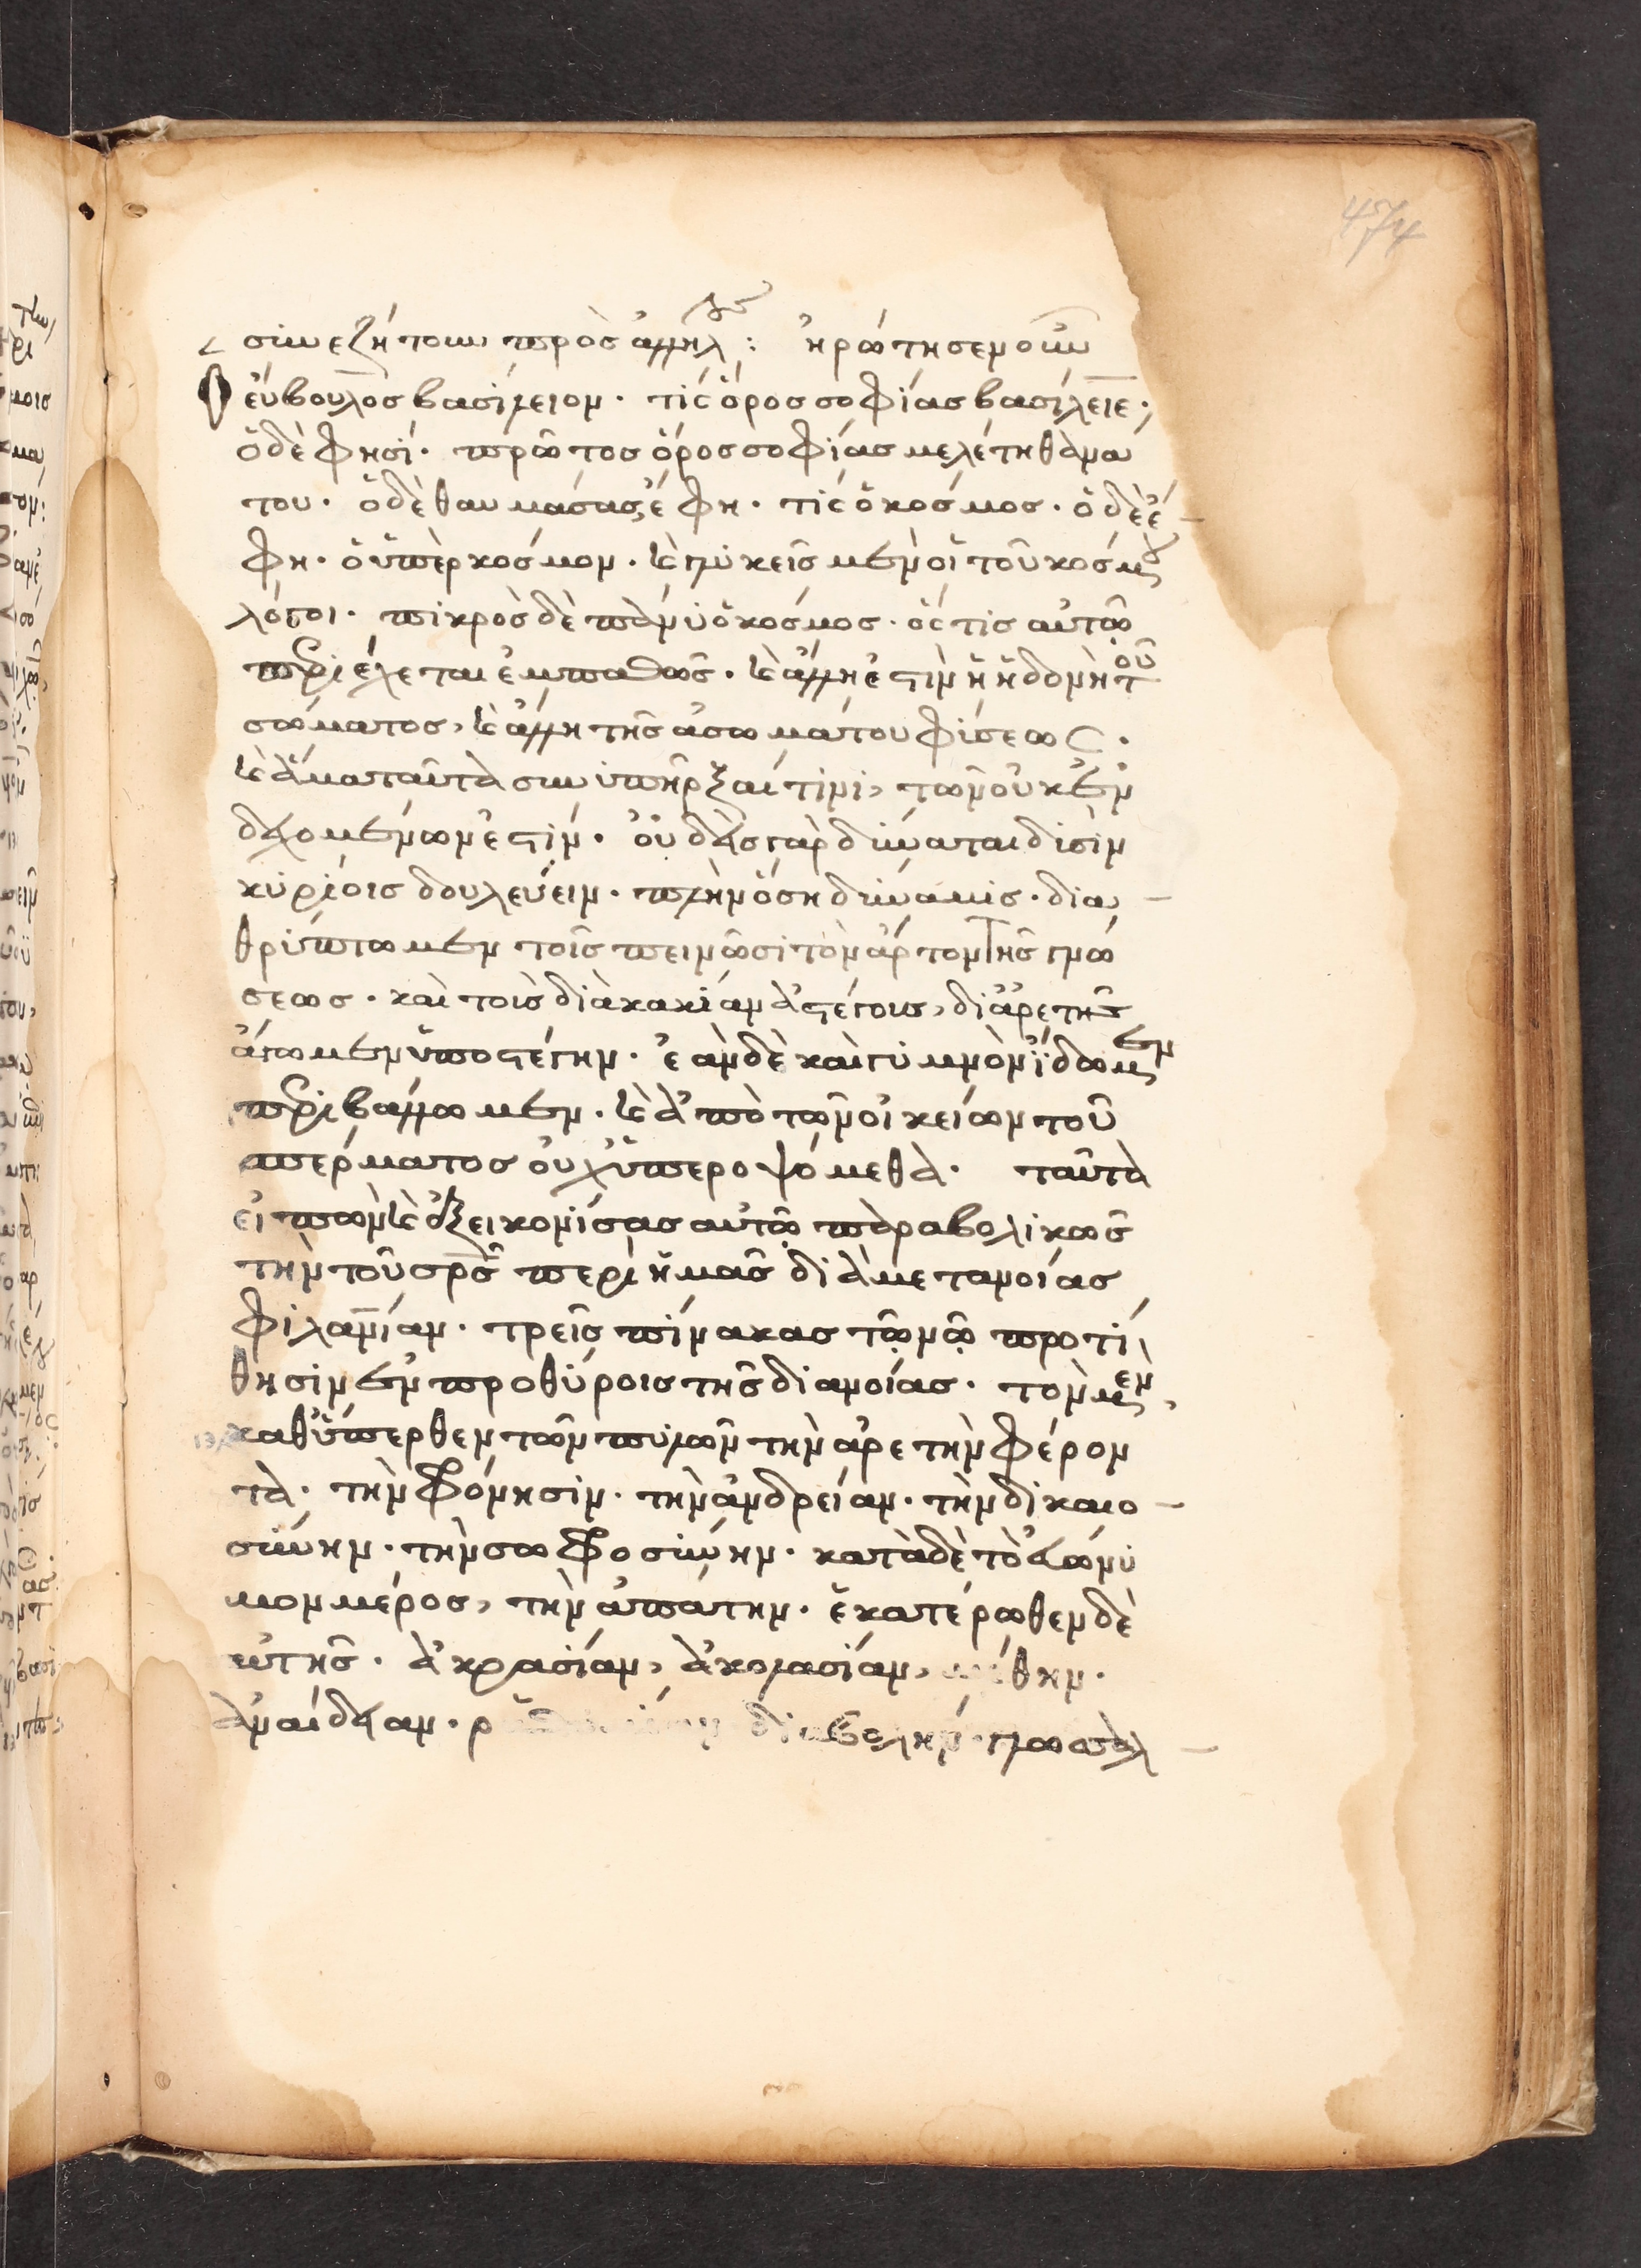 474
συνεζήτουν πρὸς ἀλλήλους: ἠρώτησεν οὖν
ὁ εὔβουλος βασίλειον· τίς ὅρος σοφίας βασίλειε·
ὁ δὲ φησί· πρῶτος ὅρος σοφίας μελέτη θανά
του· ὁ δὲ θαυμάσας, ἔφη· τίς ὁ κόσμος· ὁ δὲ ἔ
φη· ὁ ὑπὲρ κόσμον· καὶ γλυκεῖς μὲν οἱ τοῦ κόσμου
λόγοι· πικρὸς δὲ πάνυ ὁ κόσμος· ὅς τις αὐτῷ
περιέχεται ἐμπαθῶς· καὶ ἄλλη ἐστὶν ἡ ἡδονὴ τοῦ
σώματος, καὶ ἄλλη τῆς ἀσωμάτου φύσεως·
καὶ ἅμα ταῦτα συνυπῆρξαί τινι, τῶν οὐκ ἐν
δεχομένων ἐστίν· οὐδεὶς γὰρ δύναται δυσὶν
κυρίοις δουλεύειν· πλὴν ὅση δύναμις· δια
θρύπτωμεν τοῖς πεινῶσι τὸν ἄρτον τῆς γνώ
σεως· καὶ τοῖς διὰ κακίαν ἀστέγοις, δι' ἀρετῆς
ἄγωμεν ὑπὸ στέγην· ἐὰν δὲ καὶ γυμνὸν ἴδωμεν
περιβάλλωμεν· καὶ ἀπὸ τῶν οἰκείων τοῦ
σπέρματος οὐχ ὑπεροψόμεθα· ταῦτα
εἰπὼν καὶ ἐξεικονίσας αὐτῷ παραβολικῶς
τὴν τοῦ σρς περὶ ἡμᾶς διὰ μετανοίας
φιλανίαν· τρεῖς πίνακας τῷ νῷ προτί
θησιν ἐν προθύροις τῆς διανοίας· τὸν μὲν,
καθύπερθεν τῶν πυλῶν τὴν ἀρετὴν φέρον
τα· τὴν φρόνησιν· τὴν ἀνδρείαν· τὴν δικαιο
σύνην· τὴν σωφροσύνην· κατὰ δὲ τὸ εὐώνυ
μον μέρος, τὴν ἀπάτην· ἑκατέρωθεν δὲ
αὐτῆς· ἀκρασίαν, ἀκολασίαν, μέθην·
ἀναίδειαν· διαβολήν· γλωσσαλ